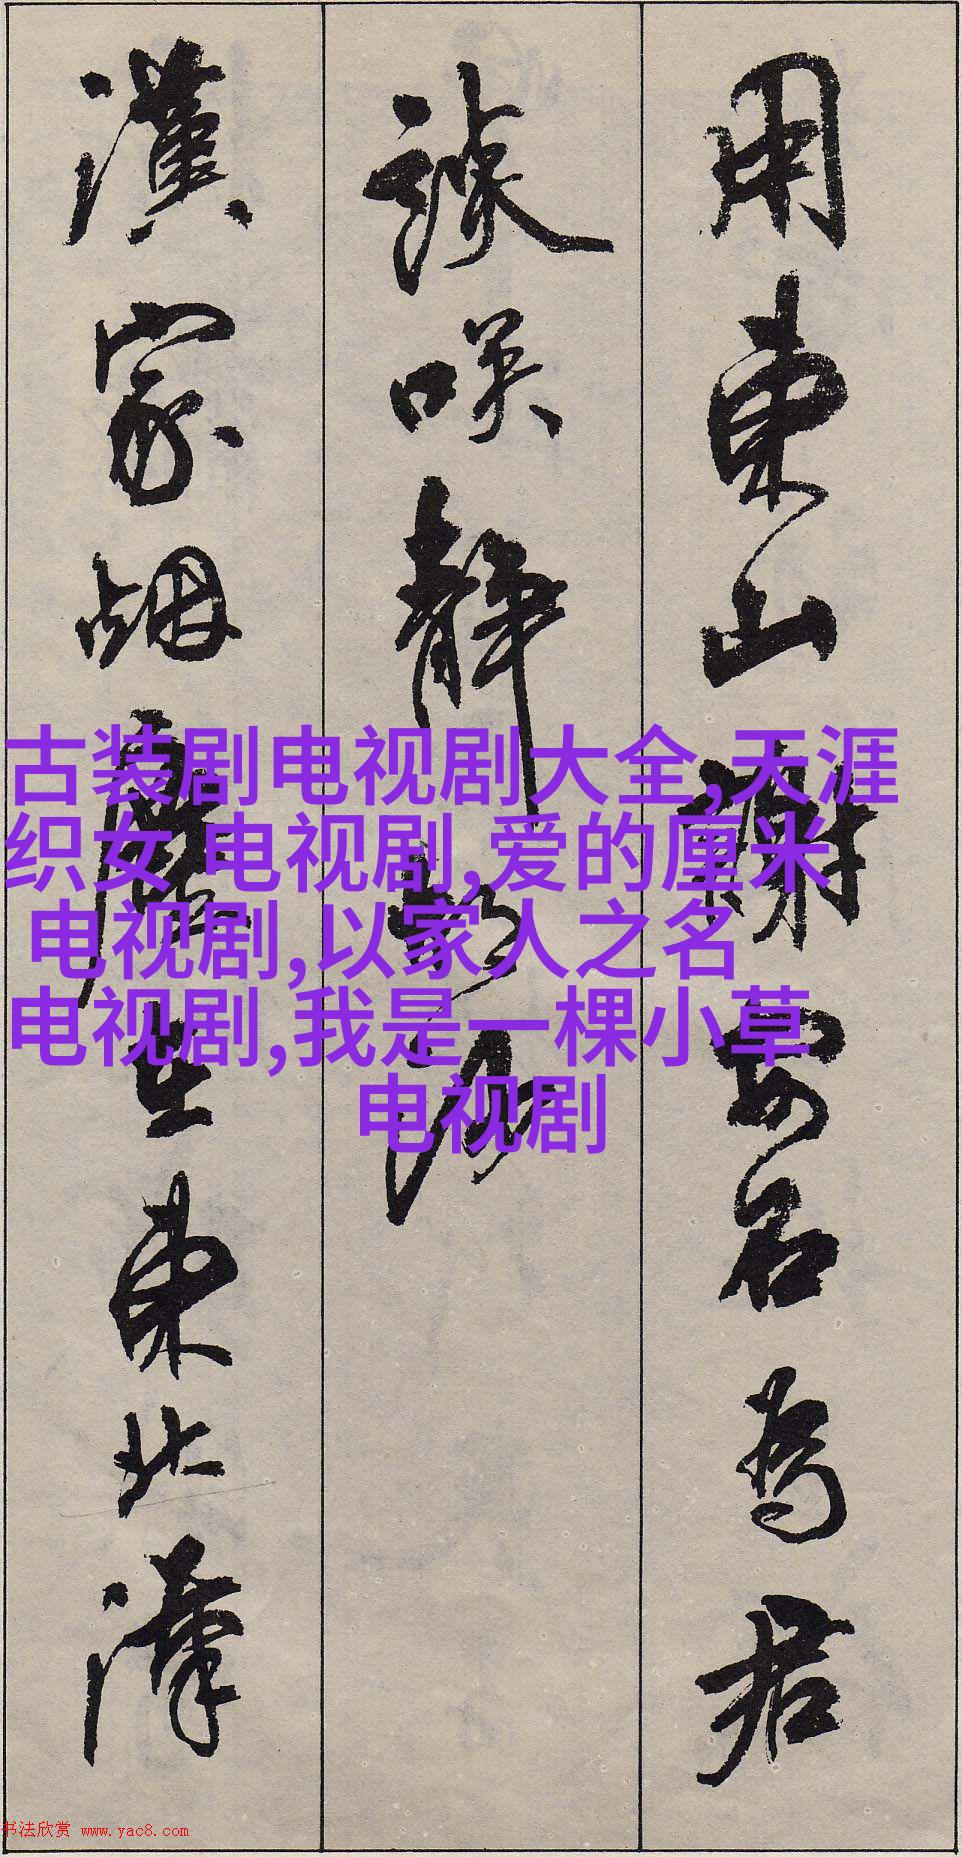 用東山謝安石為君
談咲靜胡沙
漢家烟塵在東北漢
古装剧电视剧大全,天涯
织女 电视剧,爱的厘米
电视剧,以家人之名
电视剧,我是一棵小草
电视剧
书法欣赏 www.yac8.com